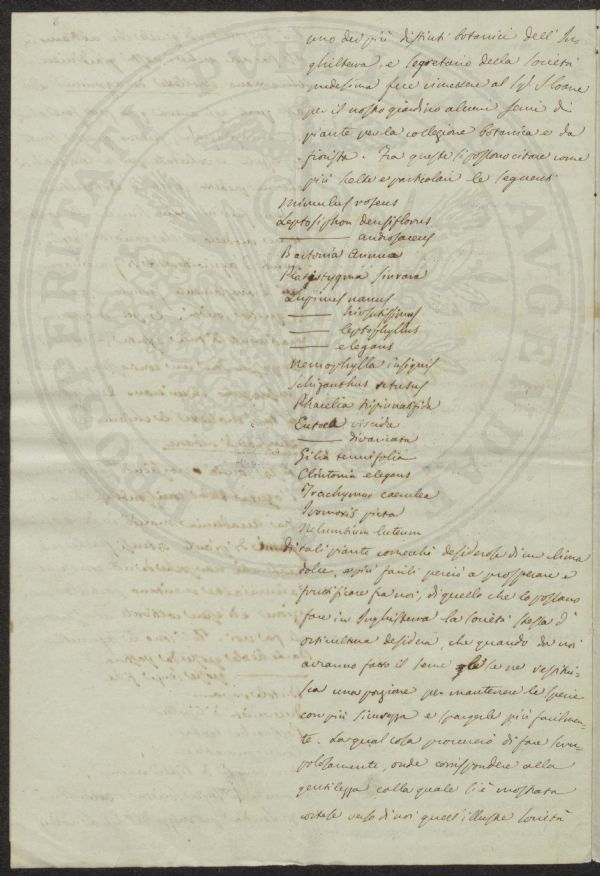 uno dei più distinti botanici dell'In-
ghilterra, e segretario della Società
medesima fece rimettere al Sig. Sloane
per il nostro giardino alcuni semi di
piante per la collezione botanica e da
fiorista. Fra queste si possono citare come
più scelte e particolari le seguenti
Mimulus roseus
Leptosiphon densiflorus
——— androsaceus
Bartonia Aurea
Platystygma
Lupinus nanus
—— hirsutissimus
—— leptophyllus
—— elegans
Nemophylla insignis
Schizanthus retusus
Phacelia
Eutoca viscida
—— divaricata
Gilia tenuifolia
Clintonia elegans
Trachymus caerulea
picta
Nelumbium luteum
Di tali piante comechè desiderose di un clima
dolce, e più facili perciò a prosperare e
fruttificare fra noi, di quello che lo possano
fare in Inghilterra la Società stessa d'
orticultura desidera, che quando da noi
avranno fatto il seme gle se ne restitui-
sca una porzione per mantenere le specie
con più sicurezza e spargerle più facilmen-
te. La qual cosa procurerò di fare scru-
polosamente, onde corrispondere alla
gentilezza colla quale si è mostrata
cortese verso di noi quell'illustre Società